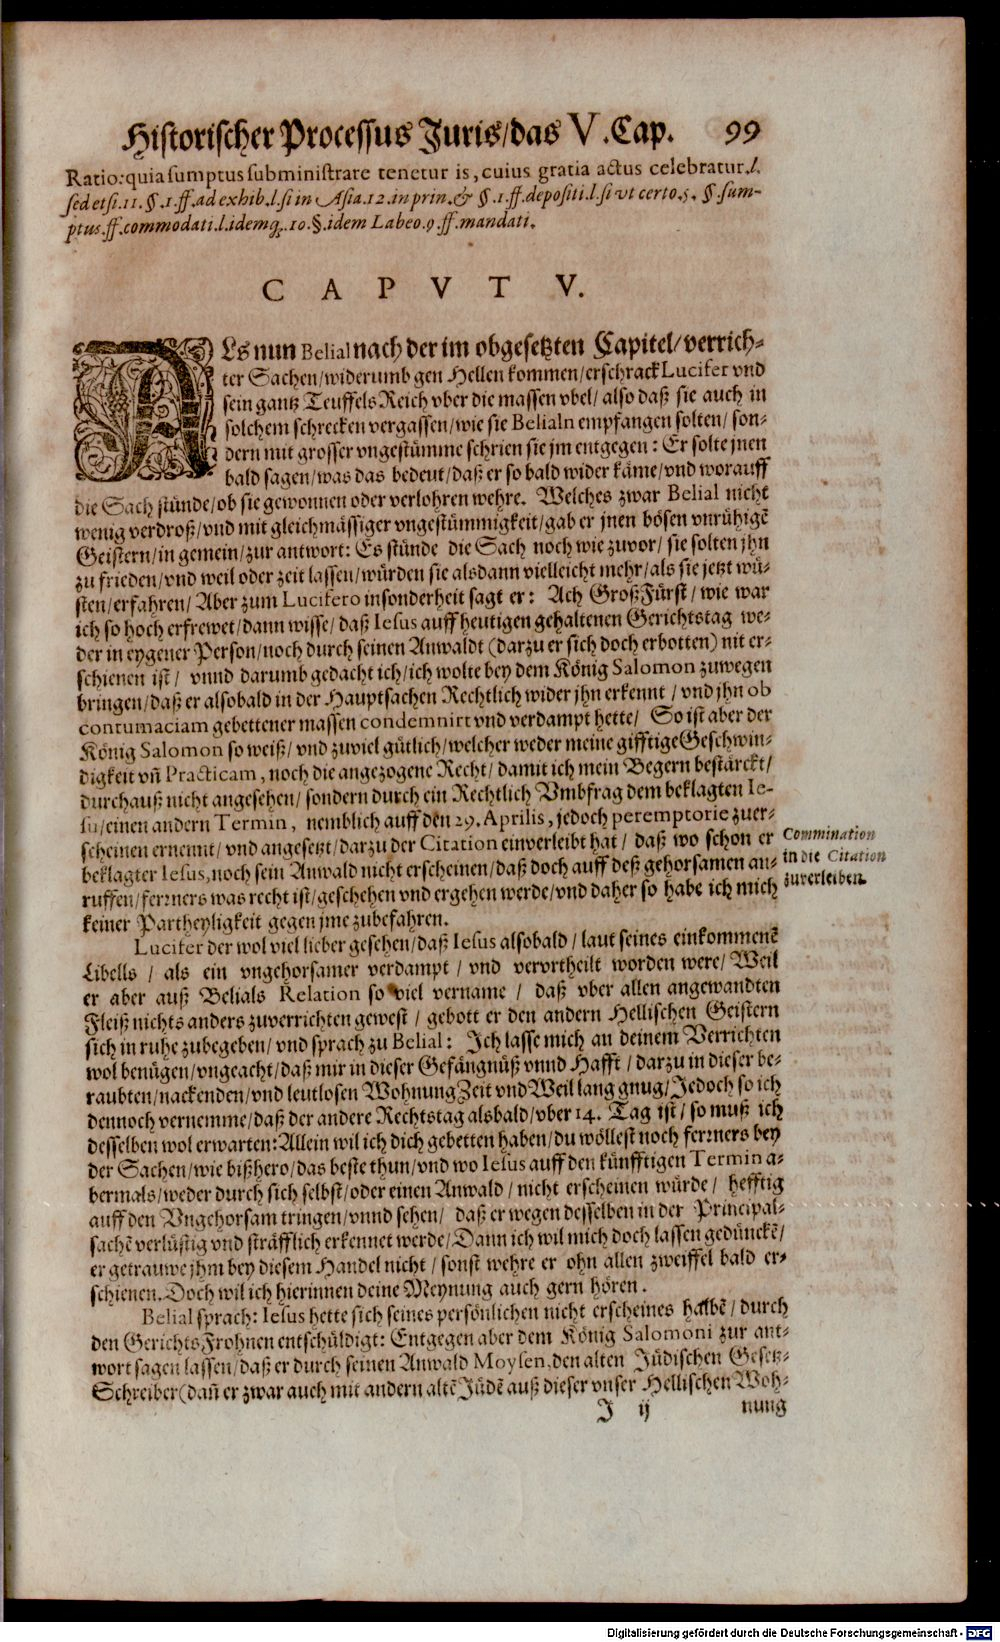 Historischer Processus Juris/das V. Cap. 99
Ratio: quia sumptus subministrare tenetur is, cuius gratia actus celebratur. l.
sed etsi. 11. §. 1. ff. ad exhib. l. si in Asia. 12. in prin. & §. 1. ff. depositi. l. si vt certo. 5. §. sum-
ptus. ff. commodati. l. idemq́. 10. §. idem Labeo. 9. ff. mandati.
CAPVT V.
ALs nun Belial nach der im obgesetzten Capitel/verrich-
ter Sachen/widerumb gen Hellen kommen/erschrack Lucifer vnd
sein gantz Teuffels Reich vber die massen vbel/also daß sie auch in
solchem schrecken vergassen/wie sie Belialn empfangen solten/son-
dern mit grosser vngestümme schrien sie jm entgegen: Er solte jnen
bald sagen/was das bedeut/daß er so bald wider käme/vnd worauff
die Sach stünde/ob sie gewonnen oder verlohren wehre. Welches zwar Belial nicht
wenig verdroß/vnd mit gleichmässiger vngestümmigkeit/gab er jnen bösen vnrühigẽ
Geistern/in gemein/zur antwort: Es stünde die Sach noch wie zuvor/sie solten jhn
zu frieden/vnd weil oder zeit lassen/würden sie alsdann vielleicht mehr/als sie jetzt wü-
sten/erfahren/Aber zum Lucifero insonderheit sagt er: Ach GroßFürst/wie war
ich so hoch erfrewet/dann wisse/daß Iesus auff heutigen gehaltenen Gerichtstag we-
der in eygener Person/noch durch seinen Anwaldt (darzu er sich doch erbotten) nit er-
schienen ist/ vnnd darumb gedacht ich/ich wolte bey dem König Salomon zuwegen
bringen/daß er alsobald in der Hauptsachen Rechtlich wider jhn erkennt/vnd jhn ob
contumaciam gebettener massen condemnirt vnd verdampt hette/ So ist aber der
König Salomon so weiß/vnd zuviel gütlich/welcher weder meine gifftige Geschwin-
digkeit vñ Practicam, noch die angezogene Recht/damit ich mein Begern bestärckt/
durchauß nicht angesehen/sondern durch ein Rechtlich Vmbfrag dem beklagten Ie-
su/einen andern Termin, nemblich auff den 29. Aprilis, jedoch peremptorie zuer-
scheinen ernennt/vnd angesetzt/darzu der Citation einverleibt hat/ daß wo schon er
beklagter Iesus, noch sein Anwald nicht erscheinen/daß doch auff deß gehorsamen an-
ruffen/ferrners was recht ist/geschehen vnd ergehen werde/vnd daher so habe ich mich
keiner Partheyligkeit gegen jme zubefahren.
Commination
in die Citation
zuverleiben.
Lucifer der wol viel lieber gesehen/daß Iesus alsobald/laut seines einkommenẽ
Libells/ als ein vngehorsamer verdampt/ vnd vervrtheilt worden were/Weil
er aber auß Belials Relation so viel vername/ daß vber allen angewandten
Fleiß nichts anders zuverrichten gewest/ gebott er den andern Hellischen Geistern
sich in ruhe zubegeben/vnd sprach zu Belial: Ich lasse mich an deinem Verrichten
wol benügen/vngeacht/daß mir in dieser Gefängnüß vnnd Hafft/darzu in dieser be-
raubten/nackenden/vnd leutlosen Wohnung Zeit vnd Weil lang gnug/Jedoch so ich
dennoch vernemme/daß der andere Rechtstag alsbald/vber 14. Tag ist/so muß ich
desselben wol erwarten: Allein wil ich dich gebetten haben/du wöllest noch ferrners bey
der Sachen/wie bißhero/das beste thun/vnd wo Iesus auff den künfftigen Termin a-
bermals/weder durch sich selbst/oder einen Anwald/nicht erscheinen würde/ hefftig
auff den Vngehorsam tringen/vnnd sehen/ daß er wegen desselben in der Principal-
sachẽ verlüstig vnd sträfflich erkennet werde/Dann ich wil mich doch lassen gedünckẽ/
er getrauwe jhm bey diesem Handel nicht/sonst wehre er ohn allen zweiffel bald er-
schienen. Doch wil ich hierinnen deine Meynung auch gern hören.
Belial sprach: Iesus hette sich seines persönlichen nicht erscheines halbẽ/durch
den GerichtsFrohnen entschüldigt: Entgegen aber dem König Salomoni zur ant-
wort sagen lassen/daß er durch seinen Anwald Moysen, den alten Jüdischen Gesetz-
Schreiber (dañ er zwar auch mit andern altẽ Jüdẽ auß dieser vnser Hellischen Woh-
J ij nung
Digitalisierung gefördert durch die Deutsche Forschungsgemeinschaft - DFG